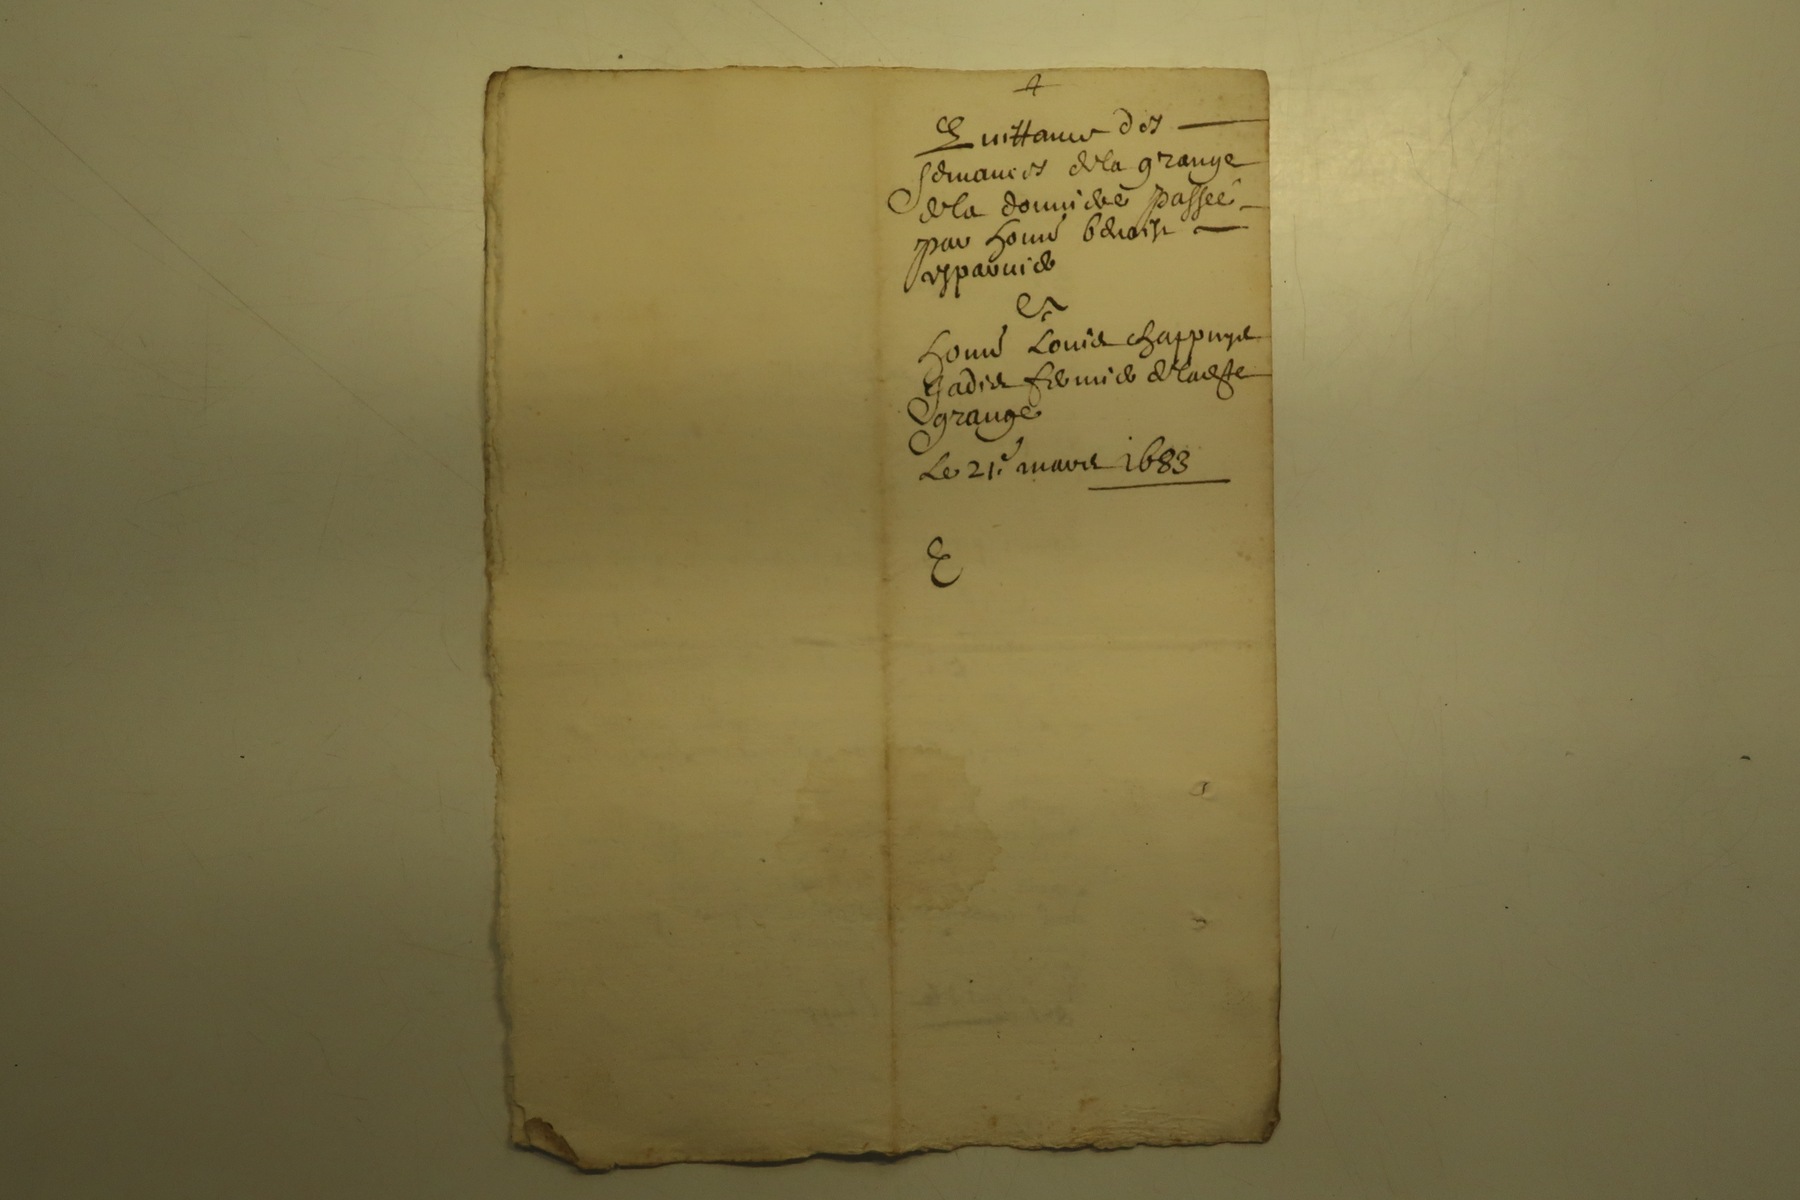 Quittance des
semances de la grange
de la donniere passeé
par honn^e benoist
esparnier
Et
honn^e Louis chappuys
gadis fermier de lad^te
grange
Le 21^e mars 1683